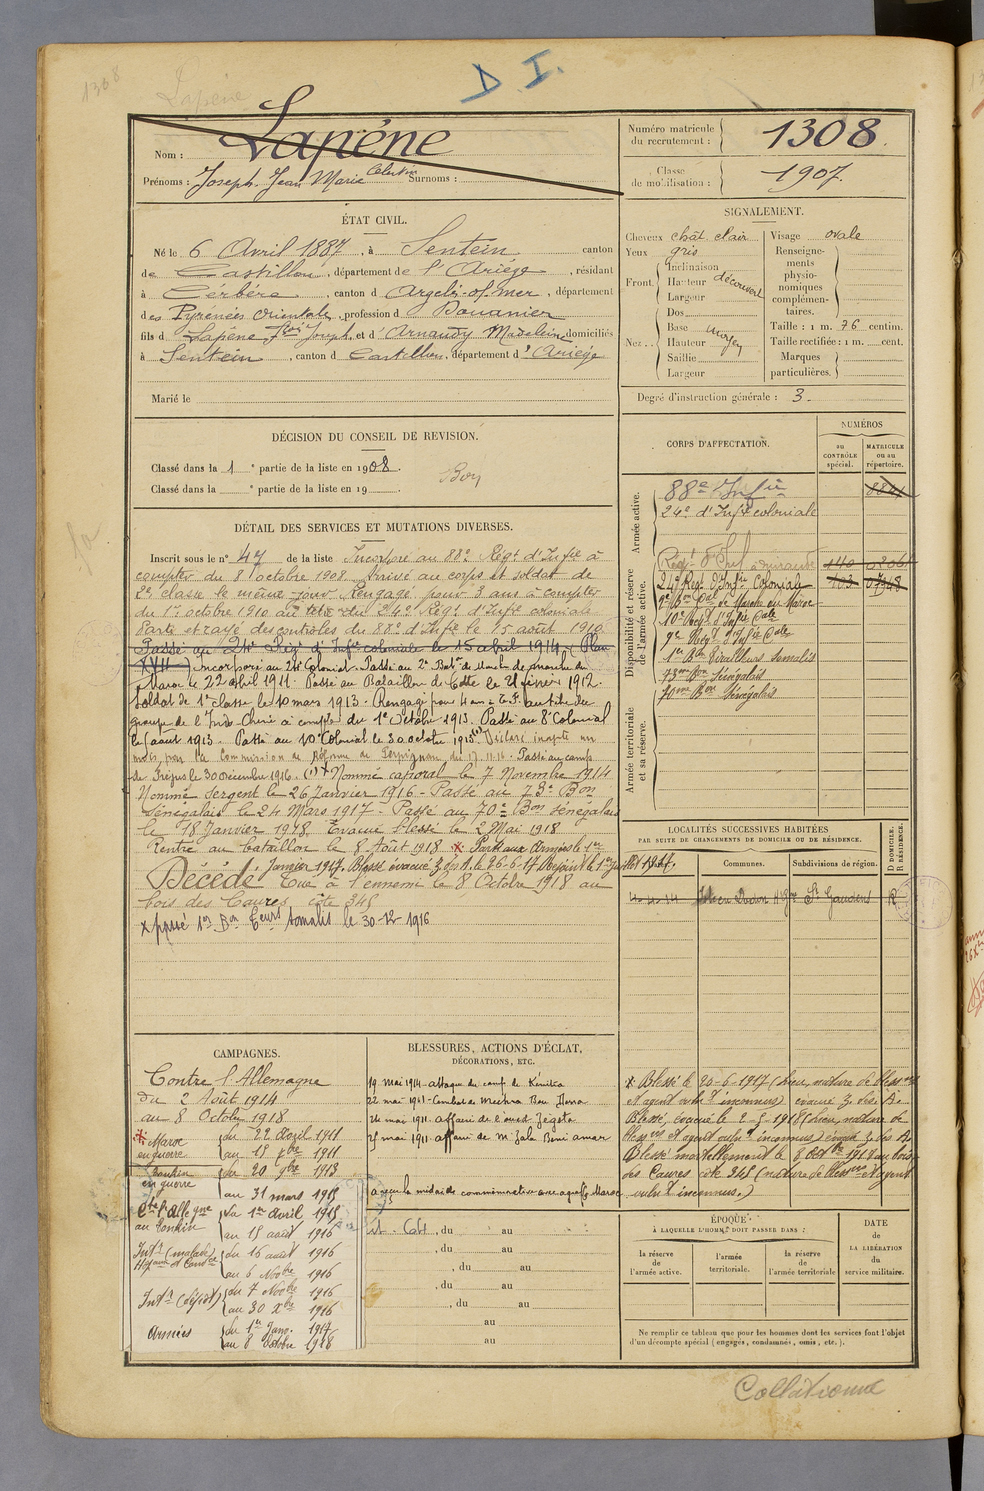 1308
Lapène
D I.
Nom : Lapène
Prénoms : Joseph Jean Marie Célestin Surnoms :
Numéro matricule du recrutement : 1308.
Classe de mobilisation : 1907.
ÉTAT CIVIL.
Né le 6 Avril 1887, à Sentein canton
de Castillon, département de l'Ariège, résidant
à Cérbère, canton d'Argelès-s/-mer, département
des Pyrénées Orientales, profession d Douanier
fils d Lapène, Joseph, et d'Arnaudy Madeleine domiciliés
à Sentein, canton d Castillon, département d'Ariège
Marié le
SIGNALEMENT.
Cheveux chât. clair
Yeux gris
Front. Inclinaison
Hauteur découvert
Largeur
Nez.. Dos
Base
Hauteur moyen
Saillie
Largeur
Visage ovale
Renseignements physionomiques complémentaires.
Taille : 1 m. 76 centim.
Taille rectifiée : 1 m. cent.
Marques particulières.
Degré d'instruction générale : 3.
DÉCISION DU CONSEIL DE REVISION.
Classé dans la 1e partie de la liste en 1908.
Classé dans la e partie de la liste en 19
Bon
CORPS D'AFFECTATION.
NUMÉROS
au CONTRÔLE spécial.
MATRICULE ou au répertoire.
Armée active.
88e d'Infie
24e d'Infie coloniale
Disponibilité et réserve de l'armée active.
24e Régt d'Infie Coloniale
2e Bon Cal de Marche du Maroc
10e Régt d'Infie Cale
9e Régt d'Infie Cale
1er Bon Tirailleurs Somalis
73ème Bon Sénégalais
70ème Bon Sénégalais
Armée territoriale et sa réserve.
DÉTAIL DES SERVICES ET MUTATIONS DIVERSES.
Inscrit sous le n° 47 de la liste Incorporé au 88e Régt d'Infie à
compter du 8 octobre 1908. Arrivé au corps et soldat de
2e classe le même jour. Rengagé pour 3 ans à compter
du 1er octobre 1910 au titre du 24e Régt d'Infie coloniale
Parti et rayé des contrôles du 88e d'Infie le 15 août 1910.
Passé au 24e Régt d'Infie coloniale le 15 avril 1914 (Plan
XVII) Incorporé au 24e Colonial. Passé au 2e Batn de Marche du
Maroc le 22 avril 1911. Passé au Bataillon de Côte le 1912.
Soldat de 1e classe le 10 mars 1913. Rengagé pour 4 ans au titre du
groupe de l'Indo Chine à compter du 1er Octobre 1913. Passé au 8e Colonial
le août 1913. Passé au 10e Colonial le 30 octobre 1913 (1) Déclaré inapte un
mois, par la Commission de Réforme de Perpignan du 17.11.16. Passé au camp
de Fréjus le 30 décembre 1916. (1) x Nommé caporal le 7 Novembre 1914
Nommé Sergent le 26 Janvier 1916 - Passé au 73e Bon
Sénégalais le 24 Mars 1917 - Passé au 70e Bon sénégalais
le 18 Janvier 1918, Evacué blessé le 2 Mai 1918
Rentré au bataillon le 8 Août 1918 x Parti aux Armées le 1er
Janvier 1917. Blessé évacué 3 le 26-6-17 Rejoint le 1er Juillet 1917.
Décédé Tué à l'ennemi le 8 Octobre 1918 au
bois des Caures, côte 345
x passé 1er Bon Tirs Somalis le 30-12-1916
LOCALITÉS SUCCESSIVES HABITÉES
PAR SUITE DE CHANGEMENTS DE DOMICILE OU DE RÉSIDENCE.
Communes.
Subdivisions de région.
D DOMICILE.
R RÉSIDENCE.
St Gaudens R
CAMPAGNES.
Contre l'Allemagne
du 2 Août 1914
au 8 Octobre 1918
* Maroc en guerre du 22 Avril 1911
au 15 1911
Tonkin en guerre du 20 9bre 1913
au 31 mars 1915
Cte l'Allegne au Tonkin du 1er Avril 1915
au 15 août 1916
Intr (malade) du 16 août 1916
au 6 Novbre 1916
Intr (dépôt) du 7 Novbre 1916
au 30 Xbre 1916
Armées du 1er Janv. 1917
au 8 Octobre 1918
BLESSURES, ACTIONS D'ÉCLAT,
DÉCORATIONS, ETC.
19 mai 1914 attaque du camp de Kénitra
22 mai 1911 - Combat de Mechra Bou
24 mai 1911. affaire de l'oued Zegota
25 mai 1911. affaire de M Zala Beni amar
a reçu la médaille commémorative avec agrafe Maroc
* Blessé le 20-6-1917 (lieu, nature de blessres
et agent vulnt inconnus) évacué 3 dos A.
Blessé, évacué le 2-5-1918 (lieu, nature de
blessres et agent vulnt inconnus) évacué 3 dos A.
Blessé mortellement le 8 Octbre 1918 au bois
des Caures côte 345 (nature de blessres et agent
vulnt inconnus.)
, du au
, du au
, du au
, du au
, du au
au
au
ÉPOQUE
À LAQUELLE L'HOMME DOIT PASSER DANS :
la réserve de l'armée active.
l'armée territoriale.
la réserve de l'armée territoriale
DATE de LA LIBÉRATION du service militaire.
Ne remplir ce tableau que pour les hommes dont les services font l'objet
d'un décompte spécial (engagés, condamnés, omis, etc.).
Collationné